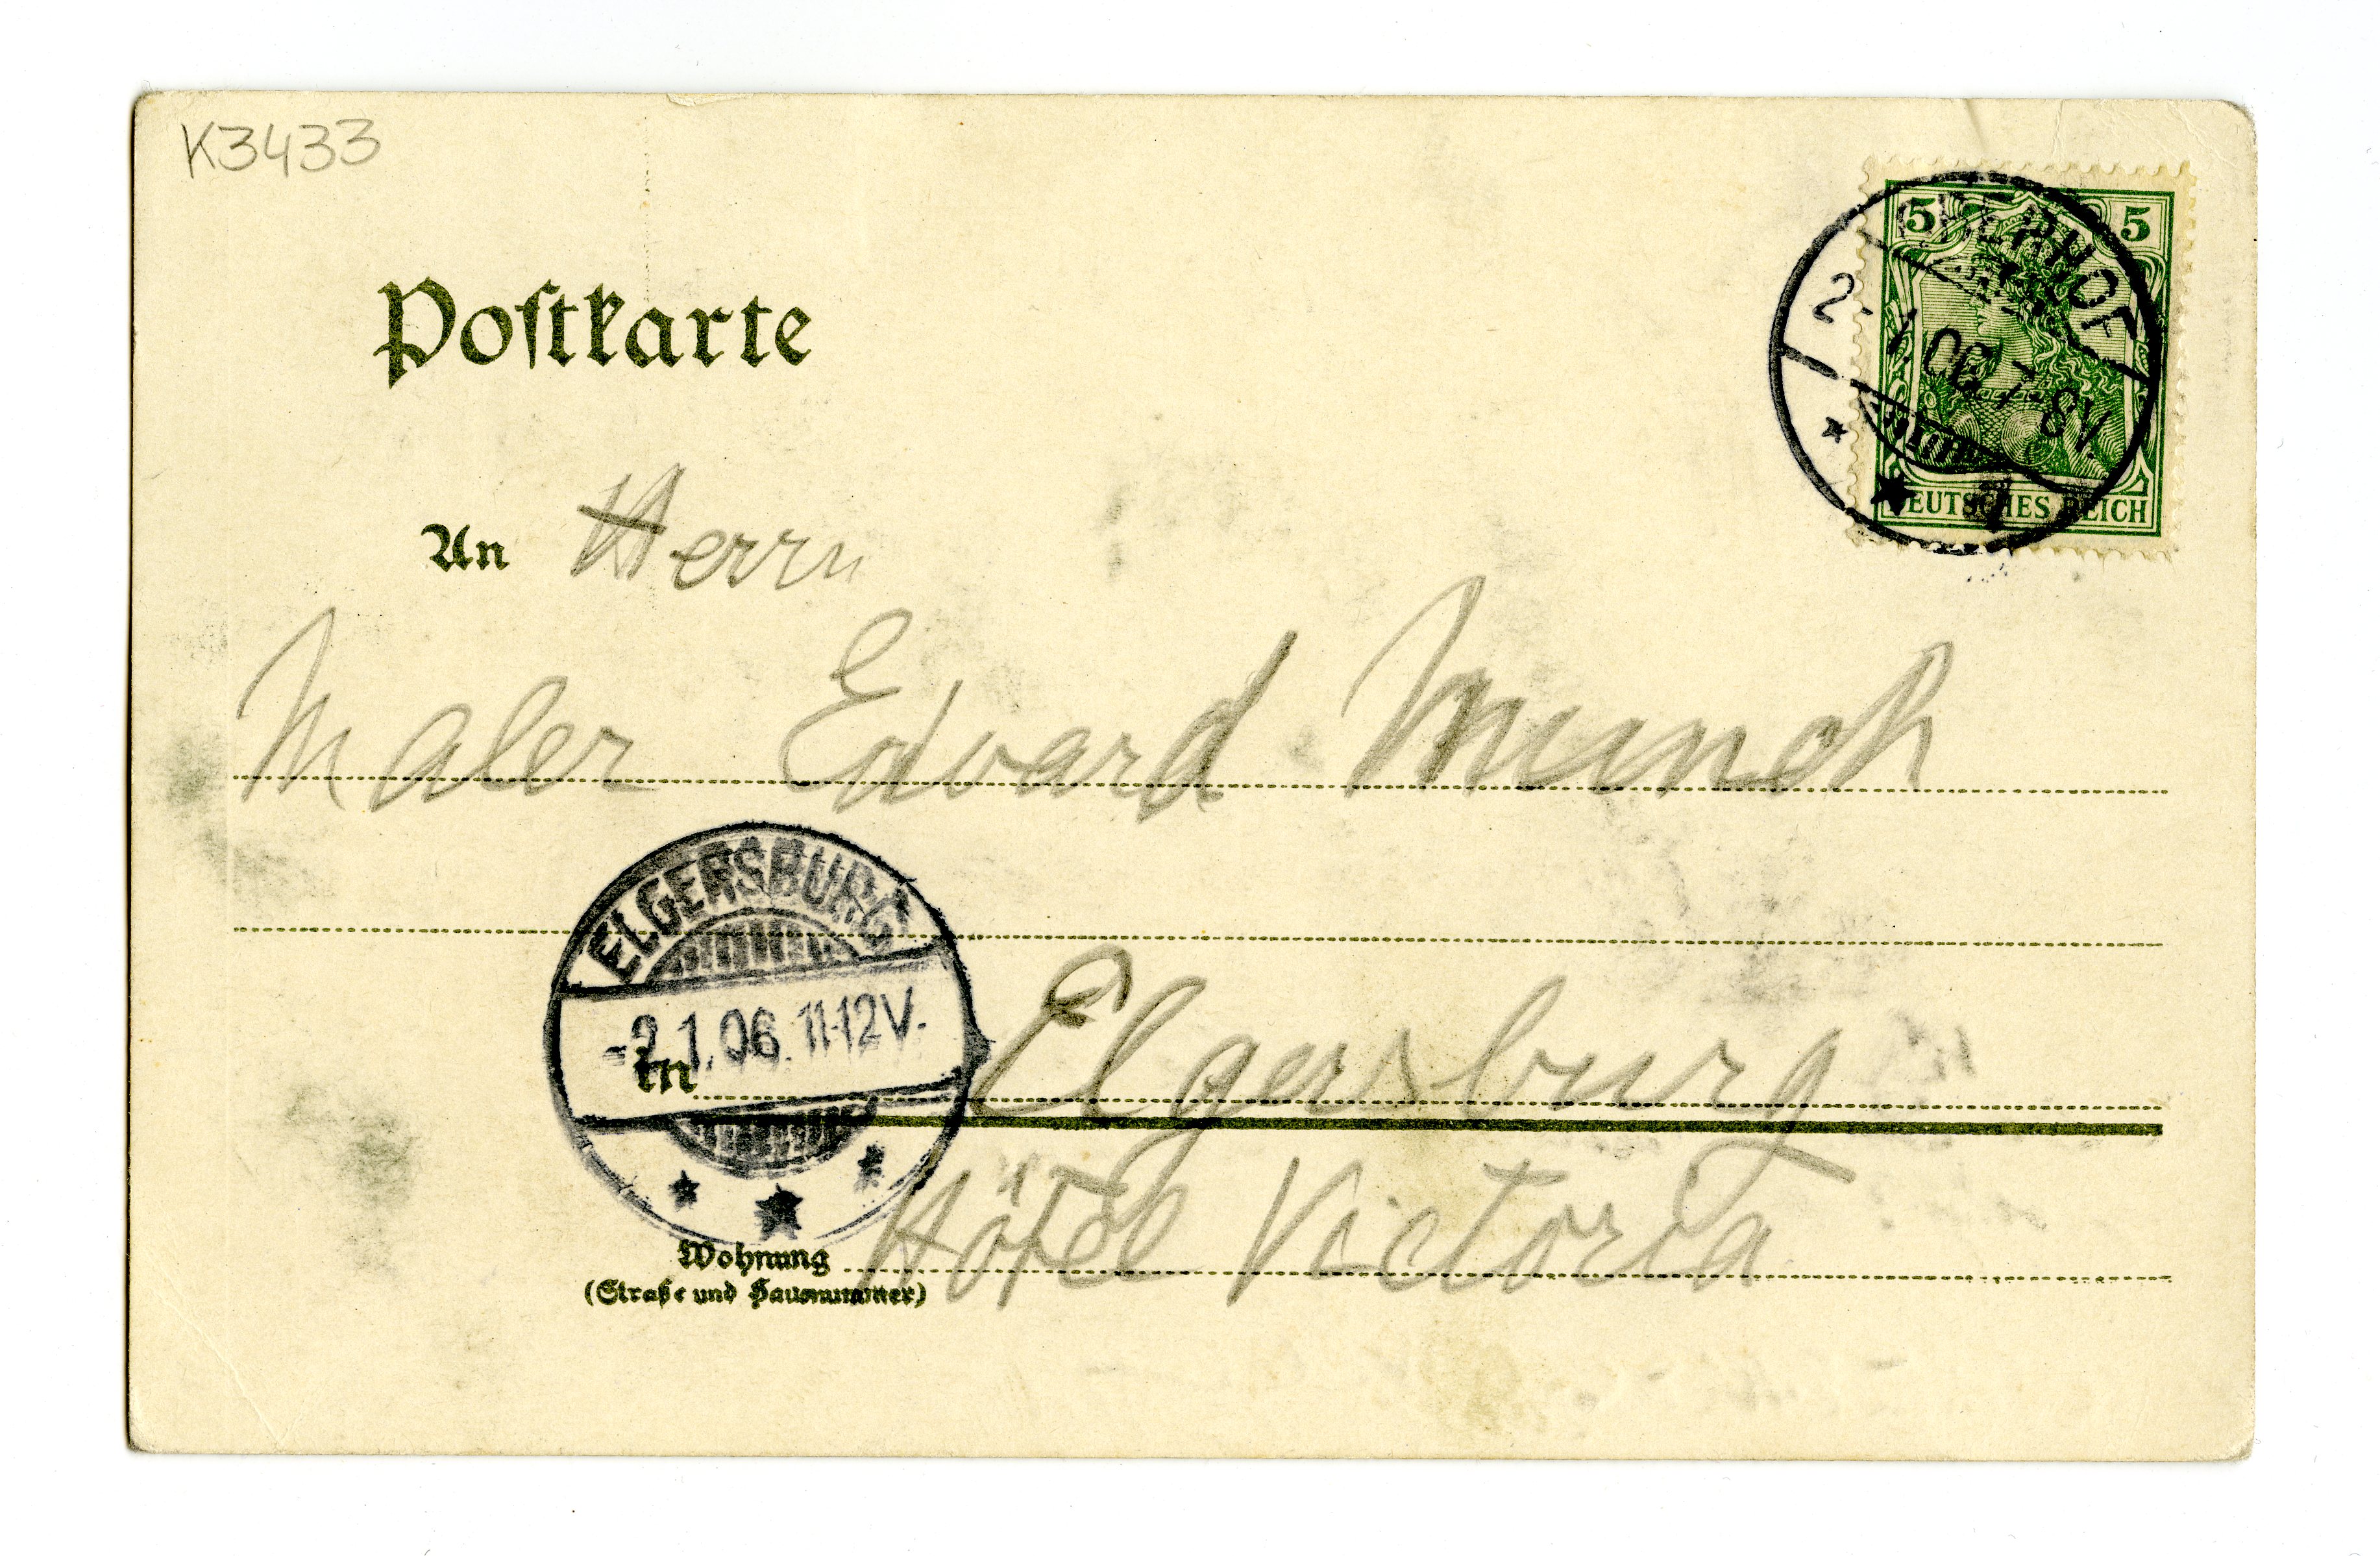 K3433
5 5
OBERHOF
2. 1. 06. 7-8V.
DEUTSCHES REICH
Postkarte
An Herrn
Maler Edvard Munch
ELGERSBURG
-2.1.06. 11-12V.
in Elgersburg
Wohnung Hôtel Victoria
(Straße und Hausnummer)